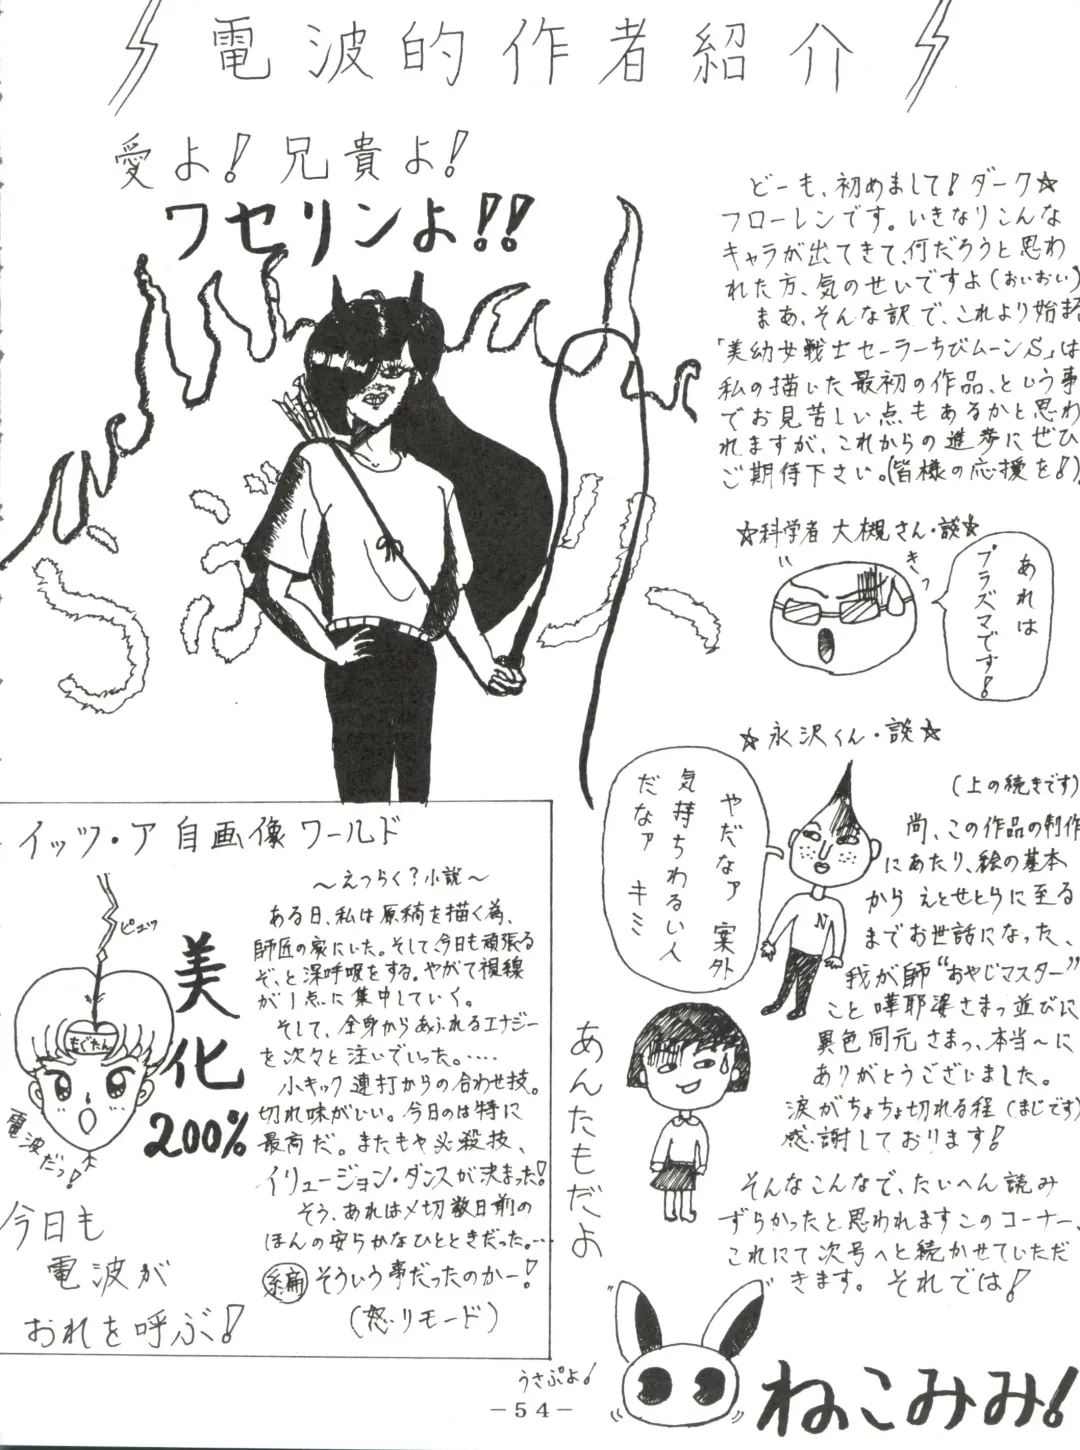 電波的作者紹介
愛よ!兄貴よ!
ワセリンよ!!
どーも、初めまして!ダーク☆
フローレンです。いきなりこんな
キャラが出てきて、何だろうと思わ
れた方、気のせいですよ(おいおい)
まあ、そんな訳で、これより始まる
「美幼女戦士セーラーちびムーンS」は
私の描いた最初の作品、という事
でお見苦しい点もあるかと思わ
れますが、これからの進歩にぜひ
ご期待下さい。(皆様の応援を!)
☆科学者 大槻さん・談☆
きっ
あれは
プラズマです!
☆永沢くん・談☆
やだなァ 案外
気持ちわるい人
だなァ キミ
(上の続きです)
尚、この作品の制作
にあたり、絵の基本
から えとせとらに至る
までお世話になった、
我が師“おやじマスター”
こと 嘩耶婆さまっ並びに
異色同元さまっ、本当〜に
ありがとうございました。
涙がちょちょ切れる程(まじです)
感謝しております!
そんなこんなで、たいへん読み
ずらかったと思われますこのコーナー、
これにて次号へと続かせていただ
きます。それでは!
あんたもだよ
イッツ・ア 自画像 ワールド
ピュッ
もぐたん
美化
200%
電波だっ!
今日も
電波が
おれを呼ぶ!
〜えっらく?小説〜
ある日、私は原稿を描く為、
師匠の家にいた。そして、今日も頑張る
ぞ、と深呼吸をする。やがて視線
が1点に集中していく。
そして、全身からあふれるエナジー
を次々と注いでいった。・・・・・
小キック連打からの合わせ技。
切れ味がいい。今日のは特に
最高だ。またもや必殺技、
イリュージョン・ダンスが決まった!
そう、あれは〆切数日前の
ほんの安らかなひとときだった。・・・
編 そういう事だったのかー!
(怒りモード)
うさぷよ!
ねこみみ!
－54－